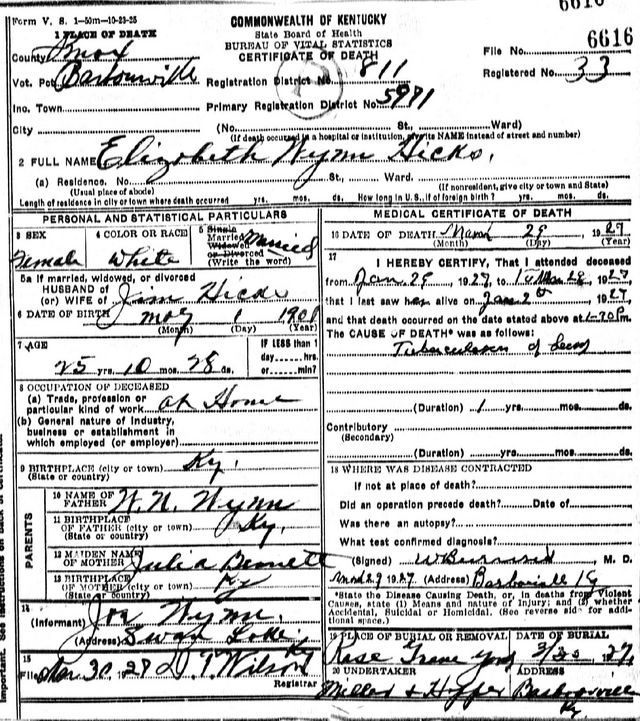 6616
Form V. S. 1-50m-10-23-25
COMMONWEALTH OF KENTUCKY
State Board of Health
BUREAU OF VITAL STATISTICS
CERTIFICATE OF DEATH
1 PLACE OF DEATH
County Knox
File No. 6616
Vot. Pct. Barbourville
Registration District No. 811
Registered No. 33
Inc. Town
Primary Registration District No. 5991
City (No. St., Ward)
(If death occurred in a hospital or institution, give its NAME instead of street and number)
2 FULL NAME Elizabeth Wynn Hicks.
(a) Residence. No. St., Ward.
(Usual place of abode) (If nonresident, give city or town and State)
Length of residence in city or town where death occurred yrs. mos. ds. How long in U. S., if of foreign birth? yrs. mos. ds.
PERSONAL AND STATISTICAL PARTICULARS
3 SEX Female
4 COLOR OR RACE White
5 Single Married Widowed or Divorced (Write the word) Married
5a If married, widowed, or divorced
HUSBAND of
(or) WIFE of Jim Hicks
6 DATE OF BIRTH May 1 1901
(Month) (Day) (Year)
7 AGE
25 yrs. 10 mos. 28 ds.
IF LESS than 1
day hrs.
or min?
8 OCCUPATION OF DECEASED
(a) Trade, profession or
particular kind of work at Home
(b) General nature of industry,
business or establishment in
which employed (or employer)
9 BIRTHPLACE (city or town) Ky.
(State or country)
PARENTS
10 NAME OF
FATHER N. N. Wynn
11 BIRTHPLACE
OF FATHER (city or town) Ky.
(State or country)
12 MAIDEN NAME
OF MOTHER Julia Bennett
13 BIRTHPLACE
OF MOTHER (city or town) Ky
(State or country)
14
(Informant) Joe Wynn
(Address) Swan Lake, Ky
15
Filed Mar 30, 1927 D. T Wilson
Registrar
MEDICAL CERTIFICATE OF DEATH
16 DATE OF DEATH March 29 1927
(Month) (Day) (Year)
17
I HEREBY CERTIFY, That I attended deceased
from Jan 29, 1927, to Mar 28, 1927
that I last saw her alive on Jan 2 1927
and that death occurred on the date stated above at 1-30 P m.
The CAUSE OF DEATH* was as follows:
Tuberculosis of
(Duration) 1 yrs. mos. ds.
Contributory
(Secondary)
(Duration) yrs. mos. ds.
18 WHERE WAS DISEASE CONTRACTED
If not at place of death?
Did an operation precede death? Date of
Was there an autopsy?
What test confirmed diagnosis?
(Signed) M. D.
Mar 29 1927 (Address) Barbourville Ky
*State the Disease Causing Death, or, in deaths from Violent
Causes, state (1) Means and nature of Injury; and (2) whether
Accidental, Suicidal or Homicidal. (See reverse side for addi-
tional space.)
19 PLACE OF BURIAL OR REMOVAL
DATE OF BURIAL
Rose Grave Yard 3/30, 27
20 UNDERTAKER
ADDRESS
Millar & Hopper Barbourville
Ky